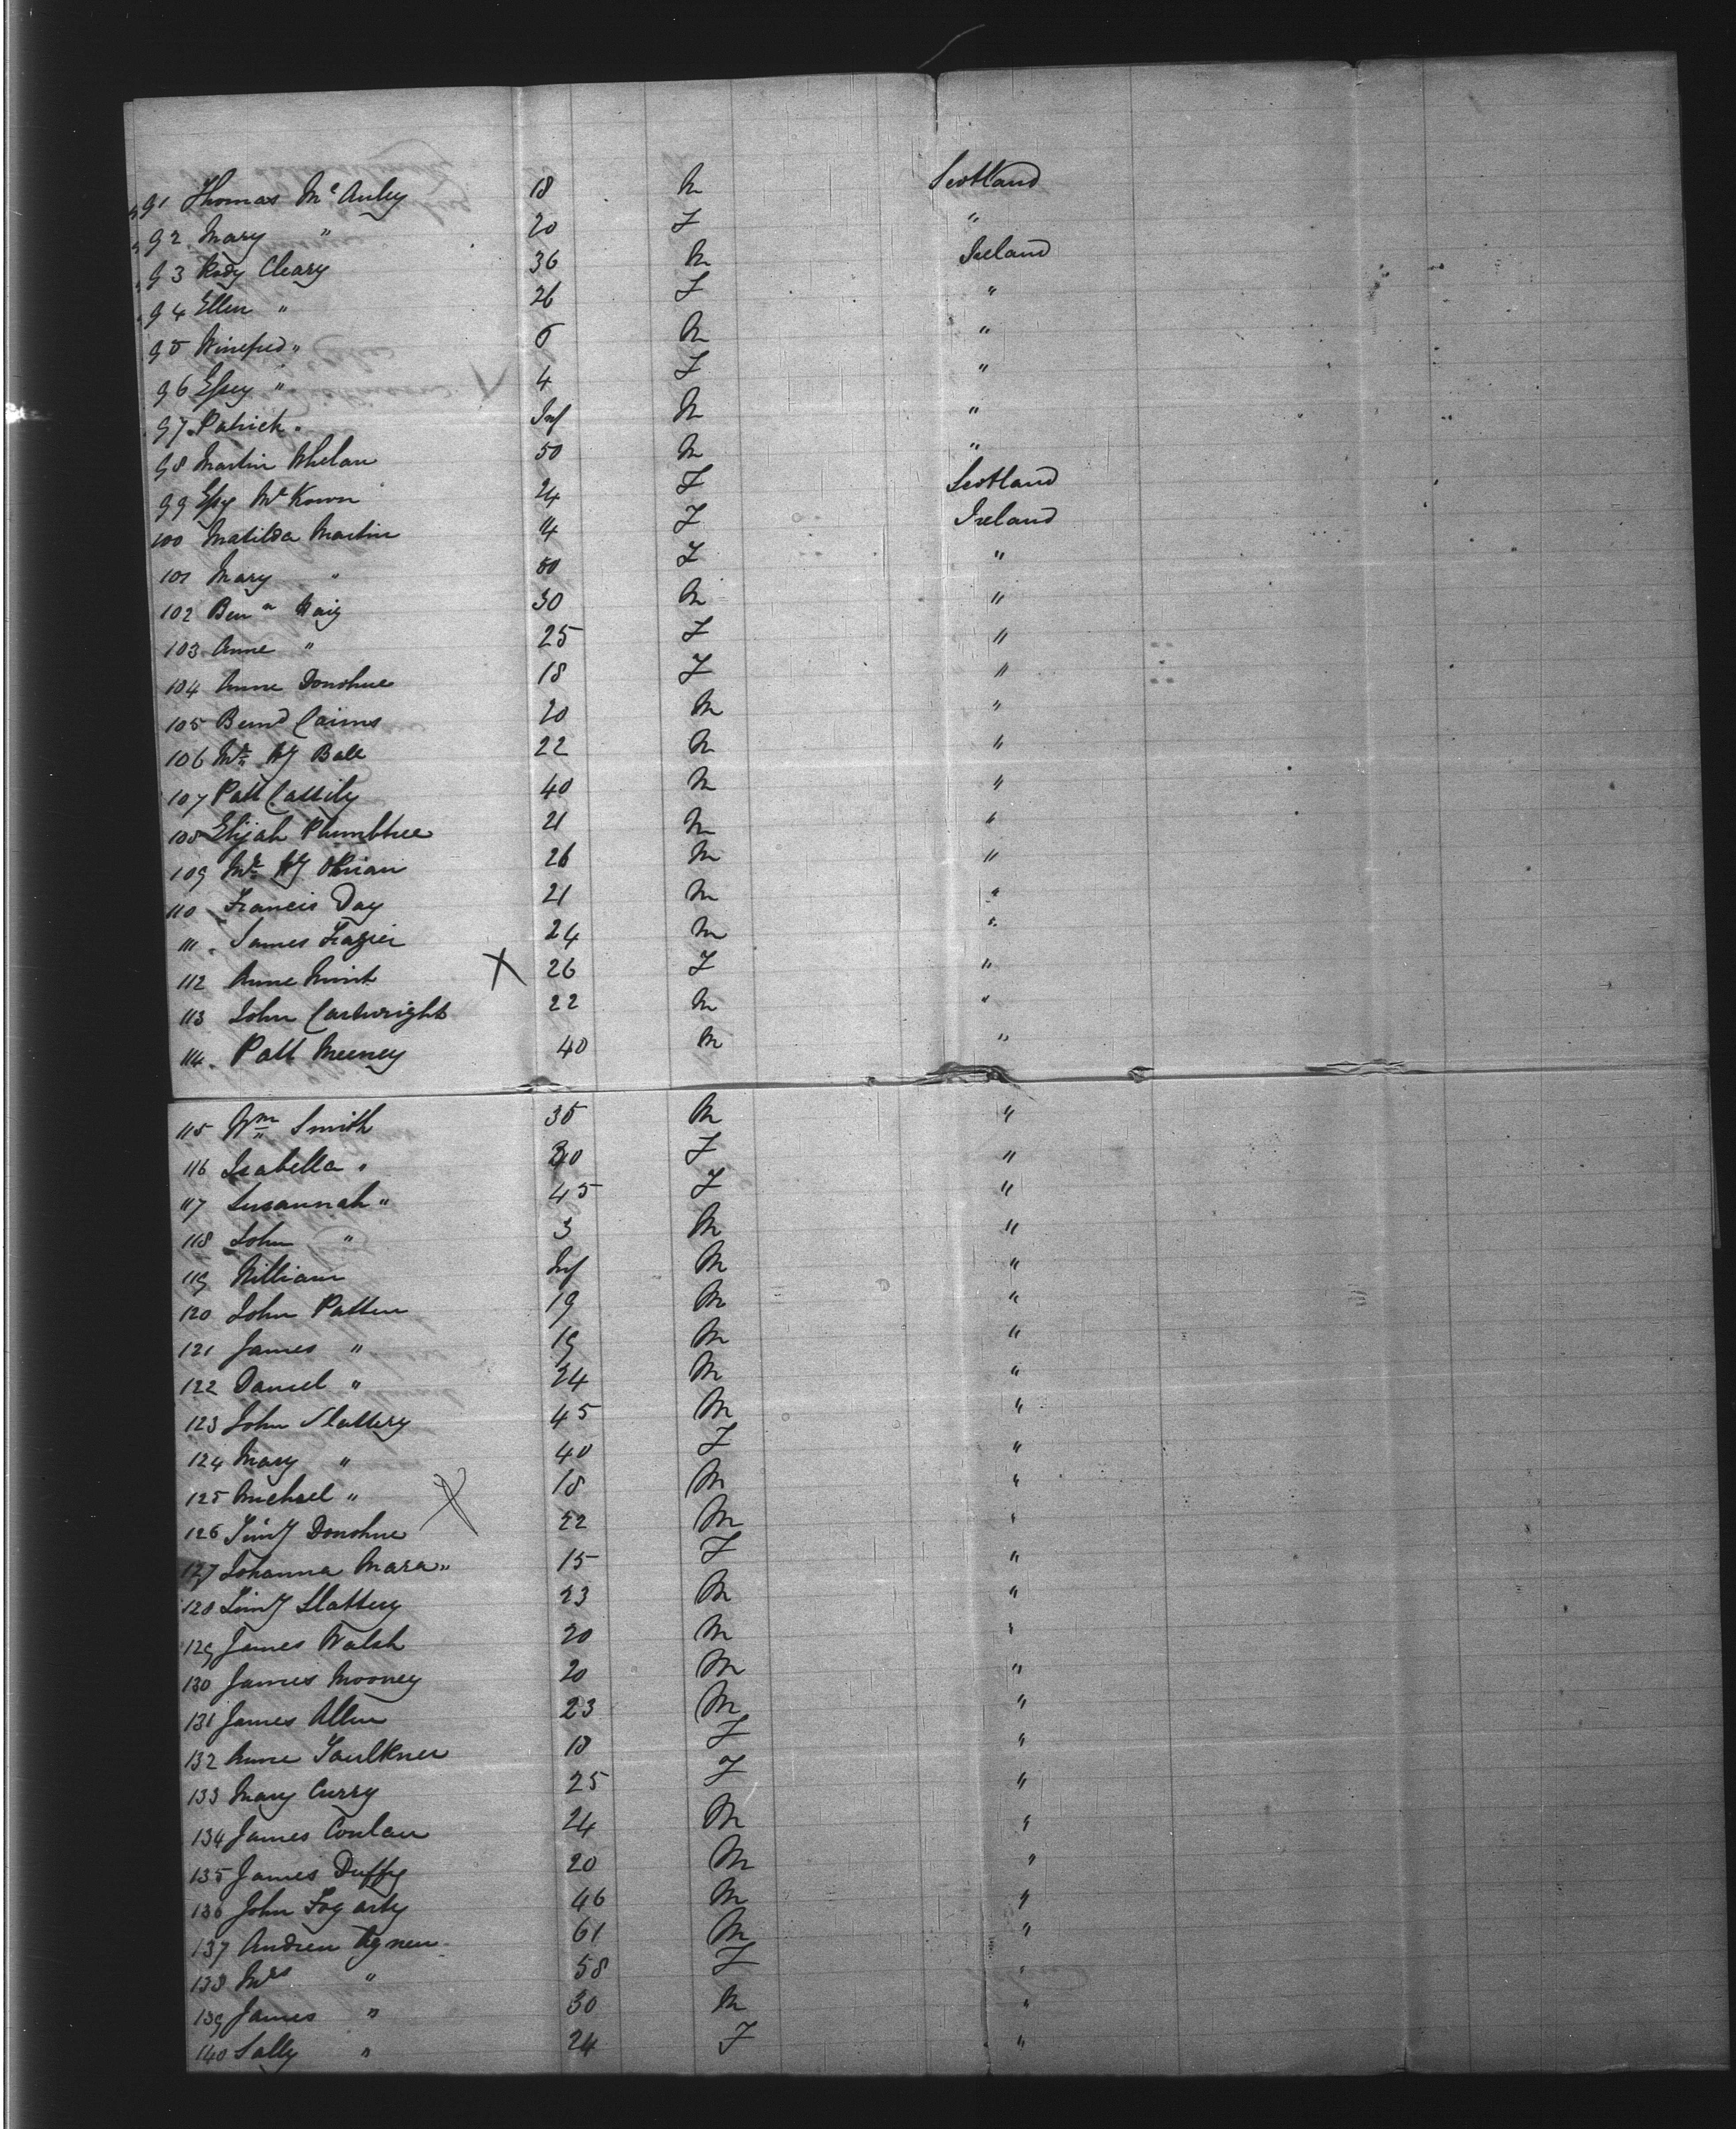 91 Thomas McAuley 18 M Scotland
92 Mary " 20 F "
93 Rody Cleary 36 M Ireland
94 Ellen " 26 F "
95 Winefred " 6 M "
96 Essey " 4 F "
97 Patrick " Inf M "
98 Martin Whelan 50 M "
99 Essy McKown 24 F Scotland
100 Matilda Martin 4 F Ireland
101 Mary " F "
102 Benn Haig 30 M "
103 Anne " 25 F "
104 Anne Donohue 18 F "
105 Bernd Cairns 20 M "
106 Mr Hy Ball 22 M "
107 Patt Cassily 40 M "
108 Elijah Plumbtree 21 M "
109 Mr Hy OBrian 26 M "
110 Francis Day 21 M "
111 James Frazier 24 M "
112 Anne X 26 F "
113 John Cartwright 22 M "
114 Patt Meeney 40 M "
115 Wm Smith 35 M "
116 Isabella " F "
117 Susannah " 45 F "
118 John " 3 M "
119 William Inf M "
120 John Patten 19 M "
121 James " 19 M "
122 Daniel " 24 M "
123 John Slattery 45 M "
124 Mary " 40 F "
125 Michael " 18 M "
126 Timy Donohue X 22 M "
127 Johanna Mara " 15 F "
128 Timy Slattery 23 M "
129 James Walsh 20 M "
130 James Mooney 20 M "
131 James Allen 23 M "
132 Anne Faulkner 18 F "
133 Mary Curry 25 F "
134 James Conlan 24 M "
135 James Duffy 20 M "
136 John Fogarty 46 M "
137 Andrew Agnew 61 M "
138 Mrs " 58 F "
139 James " 30 M "
140 Sally " 24 F "